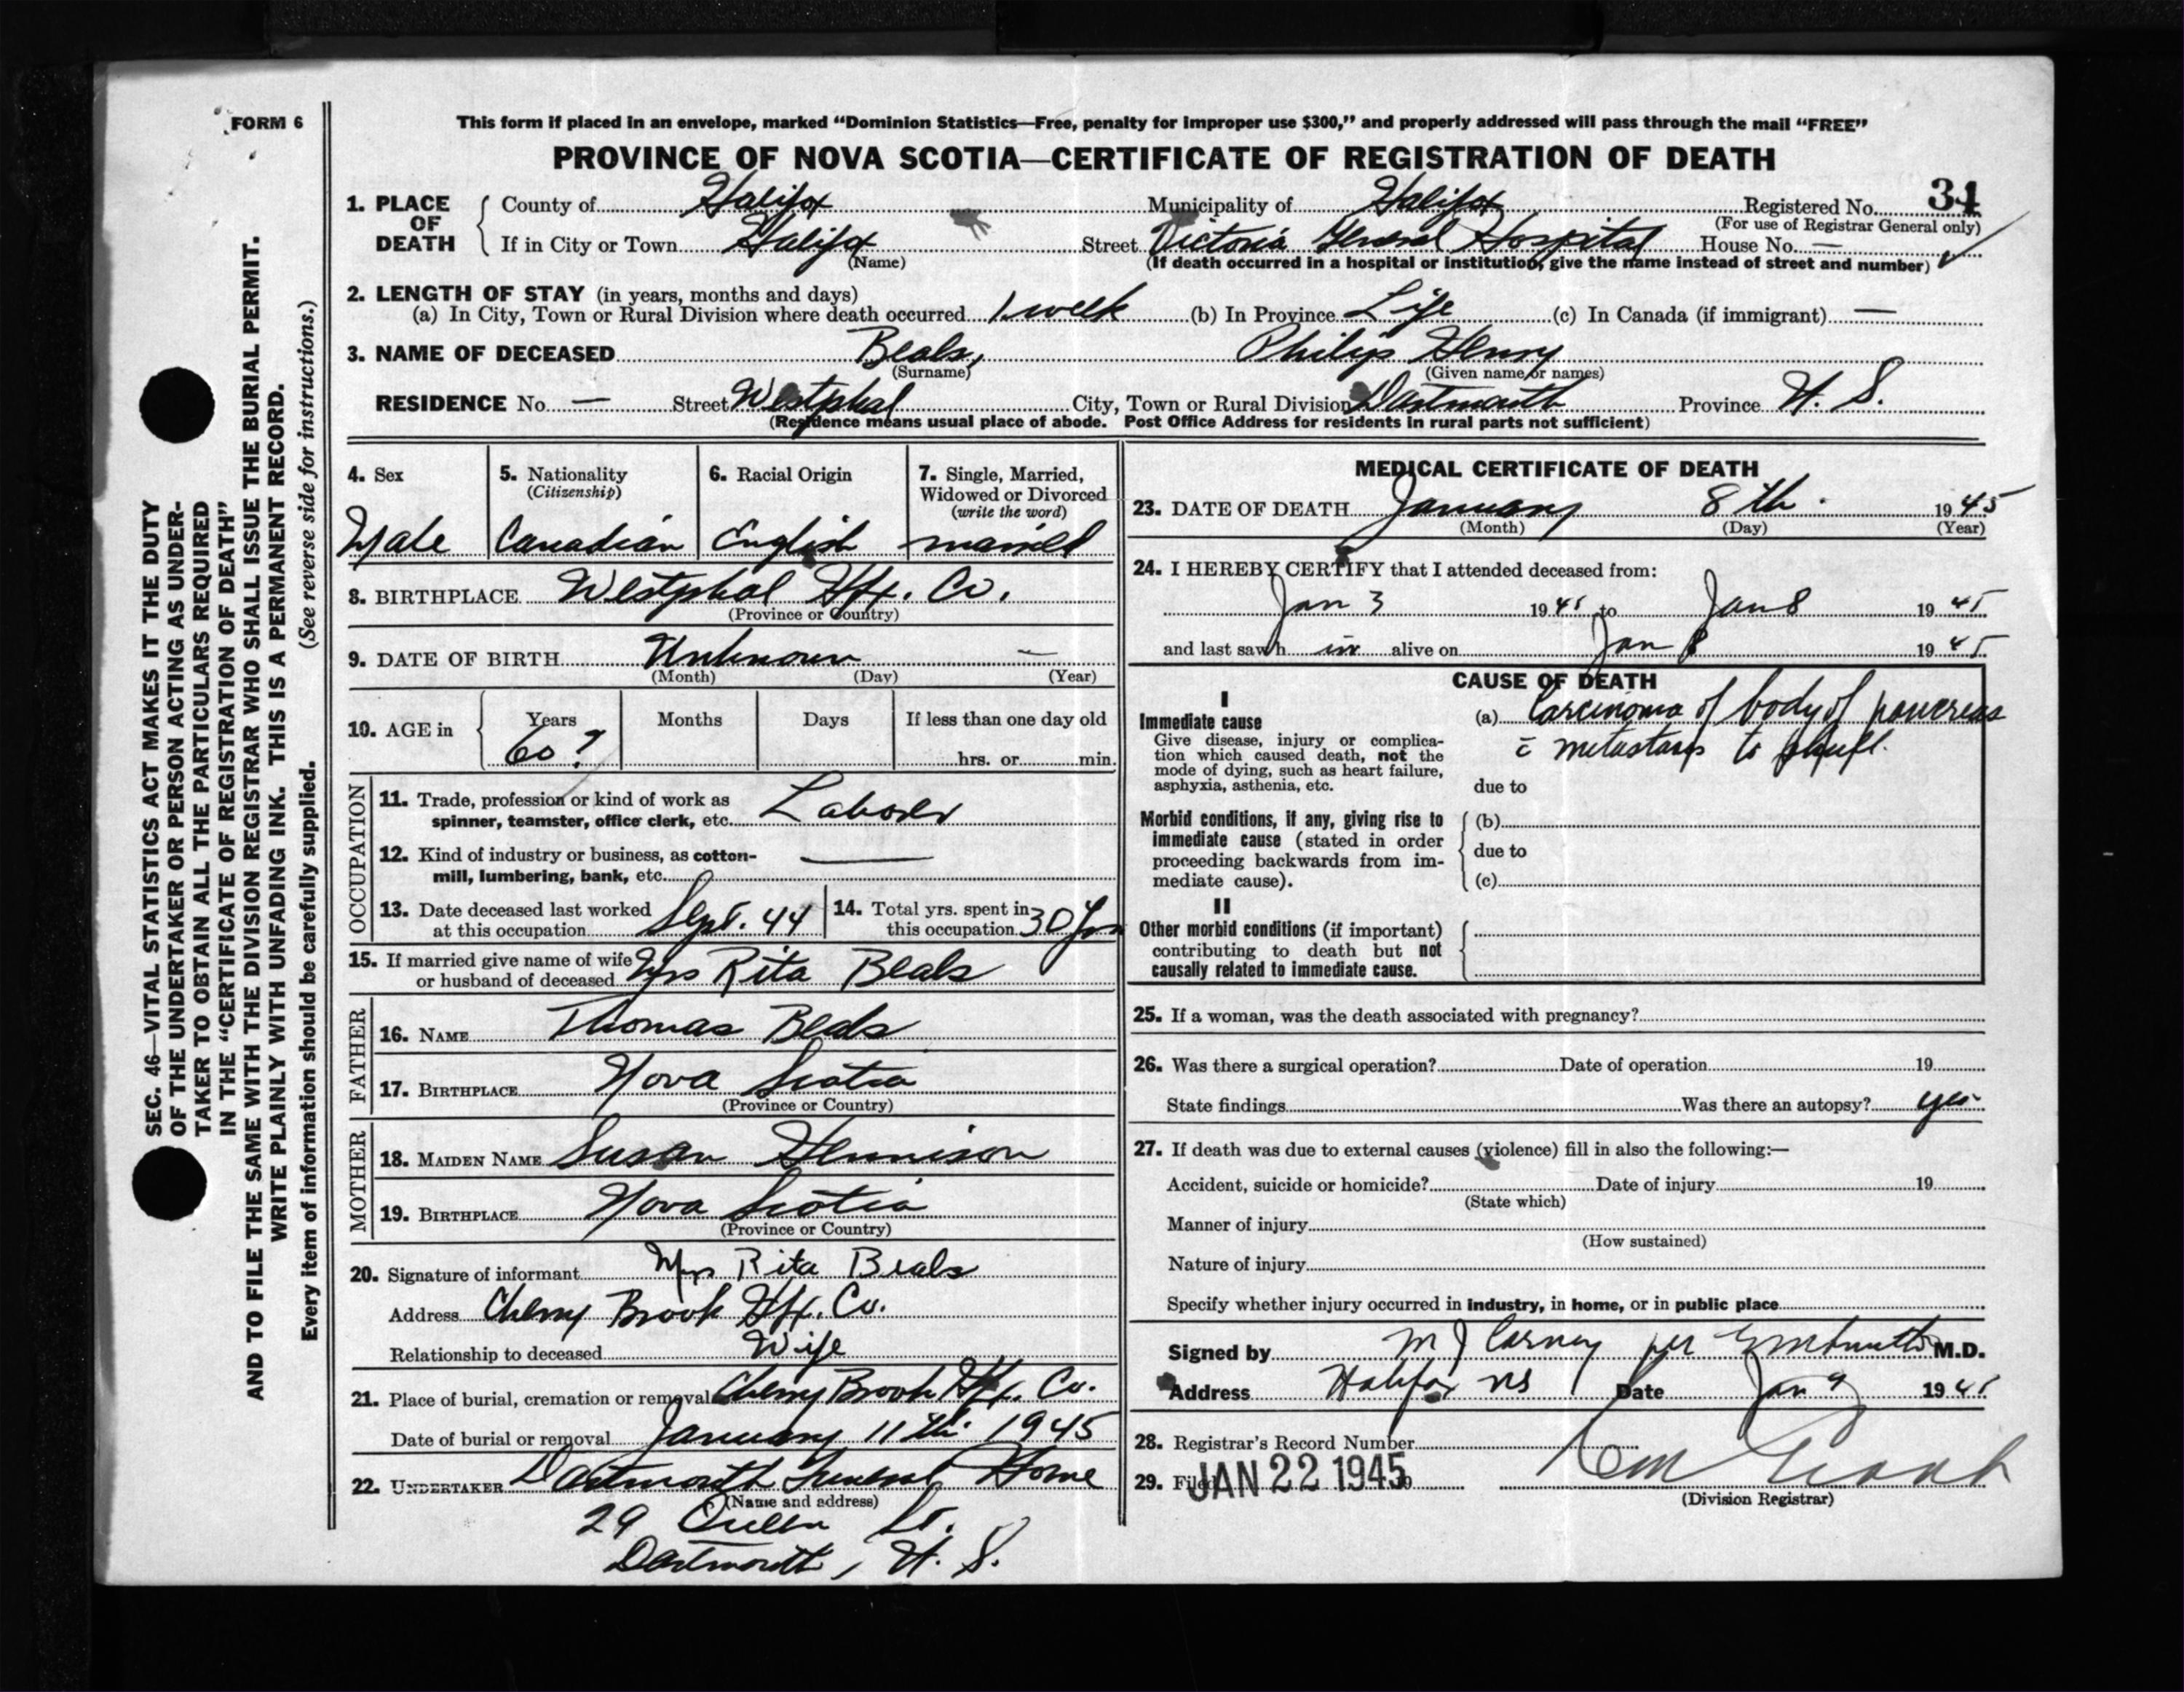 FORM 6
This form if placed in an envelope, marked "Dominion Statistics—Free, penalty for improper use $300," and properly addressed will pass through the mail "FREE"
PROVINCE OF NOVA SCOTIA—CERTIFICATE OF REGISTRATION OF DEATH
SEC. 46—VITAL STATISTICS ACT MAKES IT THE DUTY
OF THE UNDERTAKER OR PERSON ACTING AS UNDER-
TAKER TO OBTAIN ALL THE PARTICULARS REQUIRED
IN THE "CERTIFICATE OF REGISTRATION OF DEATH"
AND TO FILE THE SAME WITH THE DIVISION REGISTRAR WHO SHALL ISSUE THE BURIAL PERMIT.
WRITE PLAINLY WITH UNFADING INK. THIS IS A PERMANENT RECORD.
Every item of information should be carefully supplied. (See reverse side for instructions.)
1. PLACE OF DEATH
County of Halifax Municipality of Halifax Registered No. 34
(For use of Registrar General only)
If in City or Town Halifax Street Victoria General Hospital House No. —
(Name) (If death occurred in a hospital or institution, give the name instead of street and number)
2. LENGTH OF STAY (in years, months and days)
(a) In City, Town or Rural Division where death occurred 1 week (b) In Province Life (c) In Canada (if immigrant) —
3. NAME OF DECEASED Beals, Philip Henry
(Surname) (Given name or names)
RESIDENCE No. — Street Westphal City, Town or Rural Division Dartmouth Province N. S.
(Residence means usual place of abode. Post Office Address for residents in rural parts not sufficient)
4. Sex
Male
5. Nationality
(Citizenship)
Canadian
6. Racial Origin
English
7. Single, Married,
Widowed or Divorced
(write the word)
married
8. BIRTHPLACE Westphal Hfx. Co.
(Province or Country)
9. DATE OF BIRTH Unknown —
(Month) (Day) (Year)
10. AGE in Years Months Days If less than one day old
60? hrs. or min.
OCCUPATION
11. Trade, profession or kind of work as
spinner, teamster, office clerk, etc. Laborer
12. Kind of industry or business, as cotton-
mill, lumbering, bank, etc. —
13. Date deceased last worked
at this occupation Sept. 44
14. Total yrs. spent in
this occupation 30 Yrs
15. If married give name of wife
or husband of deceased Mrs Rita Beals
FATHER
16. NAME Thomas Beals
17. BIRTHPLACE Nova Scotia
(Province or Country)
MOTHER
18. MAIDEN NAME Susan Hennison
19. BIRTHPLACE Nova Scotia
(Province or Country)
20. Signature of informant Mrs Rita Beals
Address Cherry Brook Hfx. Co.
Relationship to deceased Wife
21. Place of burial, cremation or removal Cherry Brook Hfx. Co.
Date of burial or removal January 11th 1945
22. UNDERTAKER Dartmouth Funeral Home
(Name and address)
29 Queen St.
Dartmouth, N. S.
MEDICAL CERTIFICATE OF DEATH
23. DATE OF DEATH January 8th 1945
(Month) (Day) (Year)
24. I HEREBY CERTIFY that I attended deceased from:
Jan 3 1945 to Jan 8 1945
and last saw h im alive on Jan 8 1945
CAUSE OF DEATH
I
Immediate cause
Give disease, injury or complica-
tion which caused death, not the
mode of dying, such as heart failure,
asphyxia, asthenia, etc.
(a) Carcinoma of body of pancreas
c̄ metastases to skull.
due to
Morbid conditions, if any, giving rise to
immediate cause (stated in order
proceeding backwards from im-
mediate cause).
(b)
due to
(c)
II
Other morbid conditions (if important)
contributing to death but not
causally related to immediate cause.
25. If a woman, was the death associated with pregnancy?
26. Was there a surgical operation? Date of operation 19
State findings Was there an autopsy? yes
27. If death was due to external causes (violence) fill in also the following:—
Accident, suicide or homicide? Date of injury 19
(State which)
Manner of injury
(How sustained)
Nature of injury
Specify whether injury occurred in industry, in home, or in public place
Signed by M J Carney per M.D.
Address Halifax NS Date Jan 9 1945
28. Registrar's Record Number
29. Filed JAN 22 1945 19
(Division Registrar)